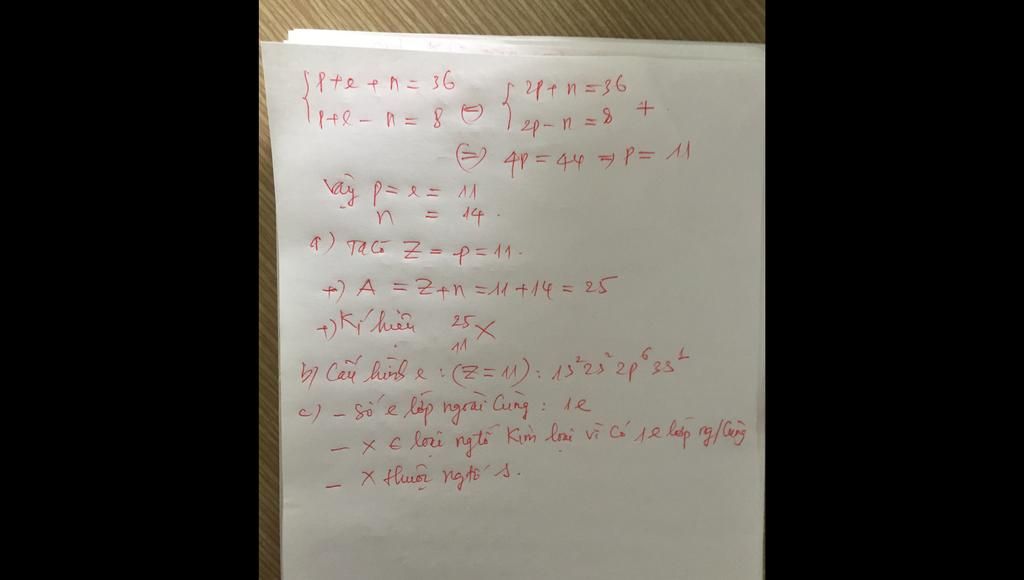 p+e+n=36 ⇔ 2p+n=36
p+e-n=8 2p-n=8 +
⇔ 4p=44 ⇒ p=11
Vậy p=e=11
n = 14.
a) Ta có Z=p=11.
+) A = Z+n=11+14=25
+) Kí hiệu ²⁵₁₁X
b) Cấu hình e: (Z=11): 1s²2s²2p⁶3s¹
c) - Số e lớp ngoài cùng: 1e
- X ∈ loại ngtố Kim loại vì có 1e lớp ng/cùng
- X thuộc ngtố s.